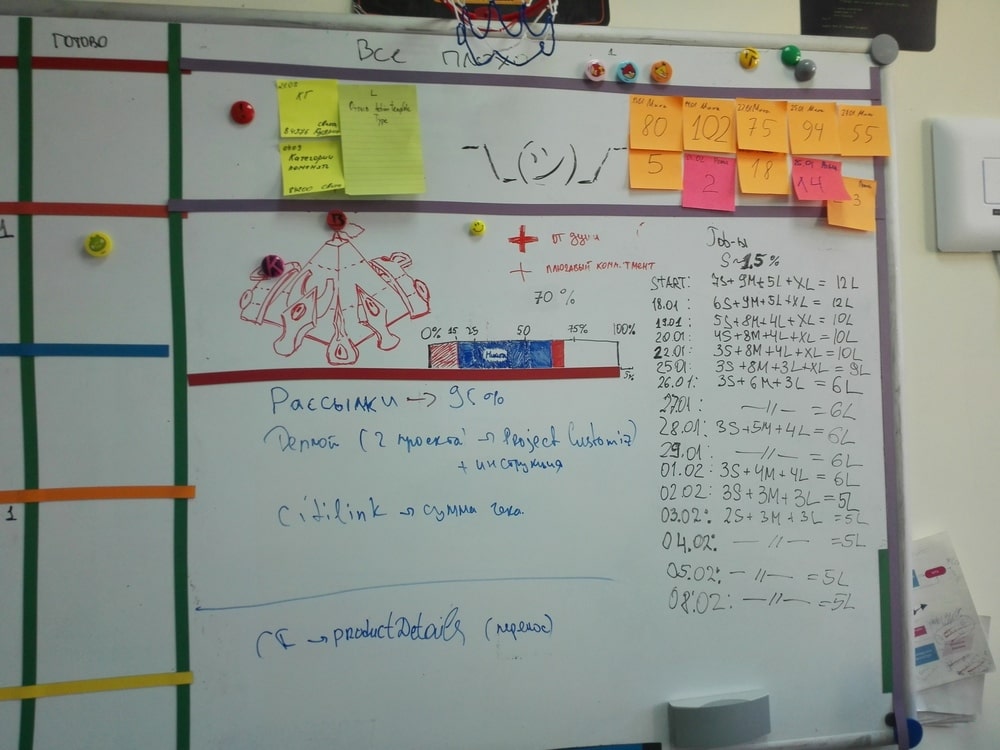 ГОТОВО
Все плохо
1
КГ
Категории
поменять
L
Type
¯\_(ツ)_/¯
80
102
75
94
55
5
2
18
14
3
1
от души
плюшавый комплтмент
70 %
0% 15 25 50 75% 100%
Никита
5%
Рассылки → 95%
Депной (2 проекта → Project Customiz)
+ инструкция
Citilink → сумма чека.
→ productDetails (перенос)
1
S~1.5 %
START: 7S+9M+5L+XL = 12L
18.01: 6S+9M+5L+XL = 12L
19.01: 5S+8M+4L+XL = 10L
20.01: 4S+8M+4L+XL = 10L
22.01: 3S+8M+4L+XL = 10L
25.01: 3S+8M+3L+XL = 9L
26.01: 3S+6M+3L = 6L
27.01: —//— = 6L
28.01: 3S+5M+4L = 6L
29.01: —//— = 6L
01.02: 3S+4M+4L = 6L
02.02: 3S+3M+3L = 5L
03.02: 2S+3M+3L = 5L
04.02: —//— = 5L
05.02: —//— = 5L
08.02: —//— = 5L